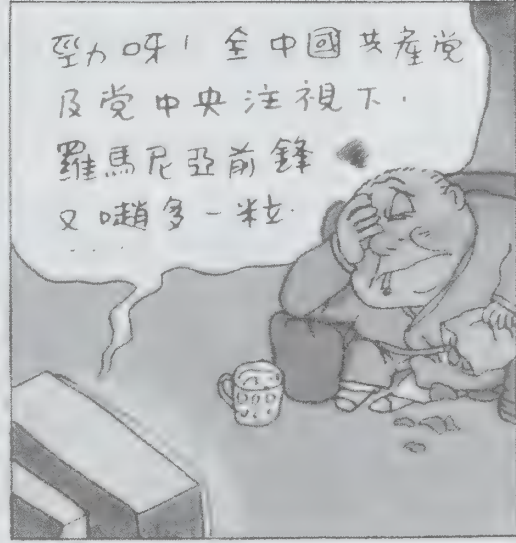 勁呀！全中國共產党
及党中央注視下．
羅馬尼亞前鋒
又𠺘多一粒．